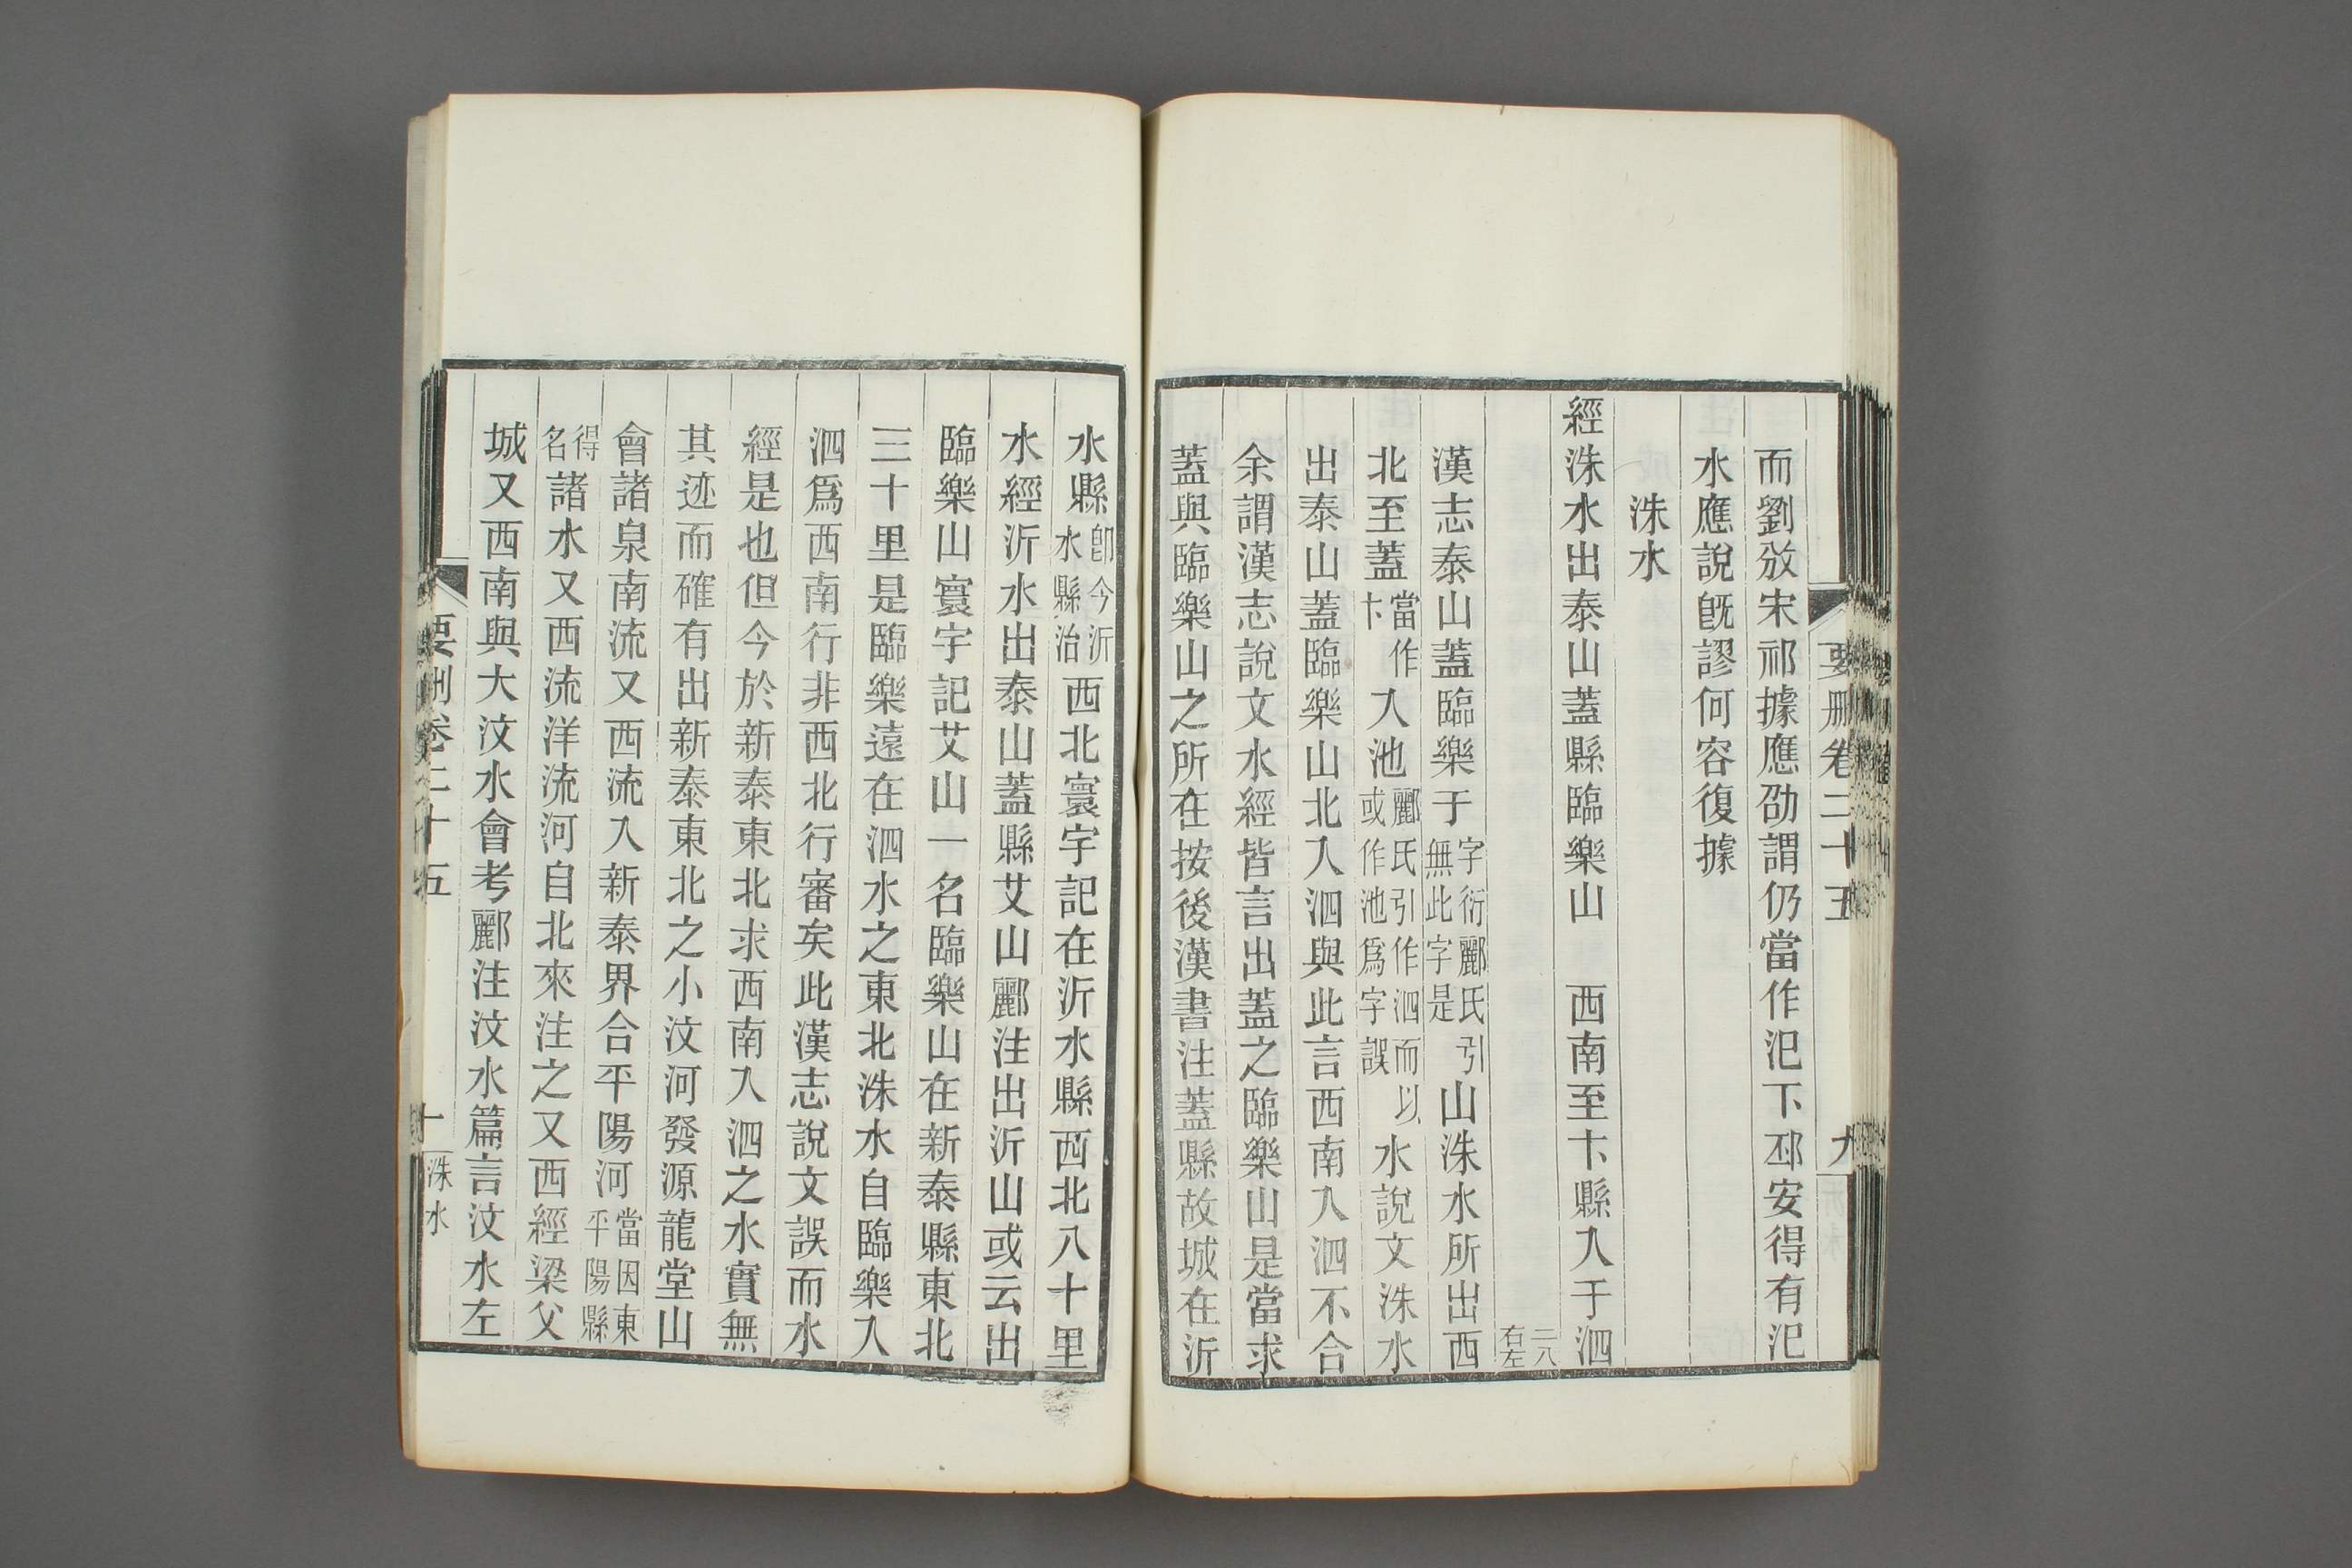 要刪卷二十五
九
而劉攽宋祁據應劭謂仍當作汜下邳安得有汜
水應說旣謬何容復據
洙水
經洙水出泰山蓋縣臨樂山　西南至卞縣入于泗
二八右左
漢志泰山蓋臨樂于字衍酈氏引無此字是山洙水所出西
北至蓋當作卞入池酈氏引作泗而以或作池爲字誤水說文洙水
出泰山蓋臨樂山北入泗與此言西南入泗不合
余謂漢志說文水經皆言出蓋之臨樂山是當求
蓋與臨樂山之所在按後漢書注蓋縣故城在沂
水縣卽今沂水縣治西北寰宇記在沂水縣西北八十里
水經沂水出泰山蓋縣艾山酈注出沂山或云出
臨樂山寰宇記艾山一名臨樂山在新泰縣東北
三十里是臨樂遠在泗水之東北洙水自臨樂入
泗爲西南行非西北行審矣此漢志說文誤而水
經是也但今於新泰東北求西南入泗之水實無
其迹而確有出新泰東北之小汶河發源龍堂山
會諸泉南流又西流入新泰界合平陽河當因東平陽縣
得名諸水又西流洋流河自北來注之又西經梁父
城又西南與大汶水會考酈注汶水篇言汶水左
要刪卷二十五
十
洙水